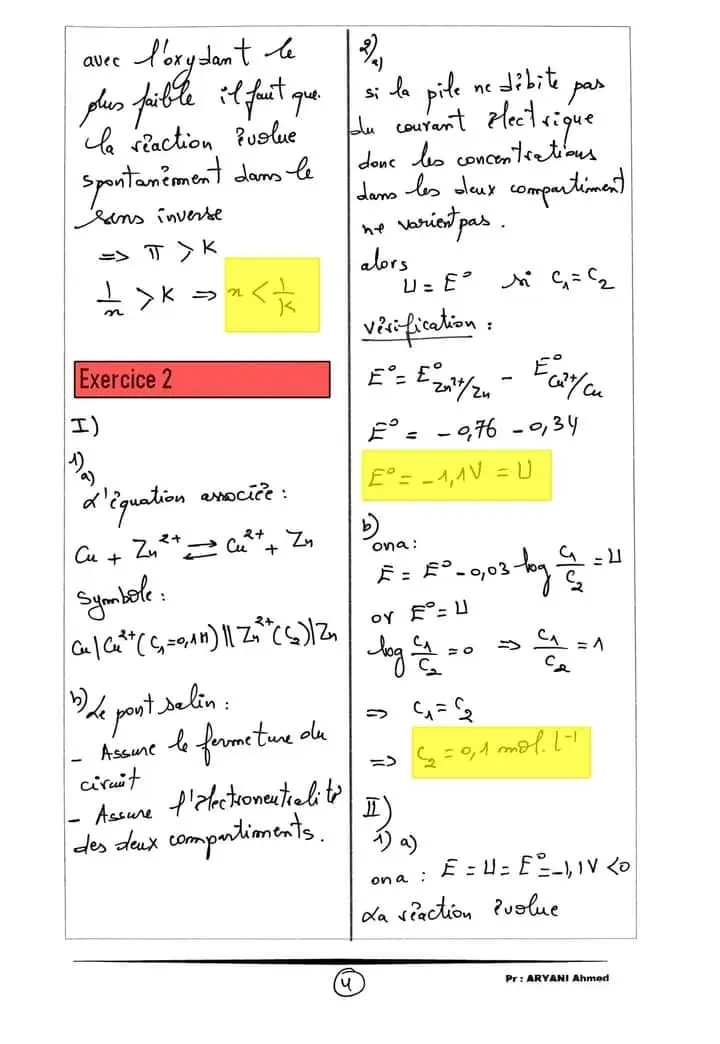 avec l'oxydant le
plus faible il faut que
la réaction évolue
spontanément dans le
sens inverse
=> π > K
1/x > K => x < 1/K
Exercice 2
I)
1)
a)
L'équation associée :
Cu + Zn²⁺ ⇌ Cu²⁺ + Zn
Symbole :
Cu | Cu²⁺ (C₁=0,1M) || Zn²⁺ (C₂) | Zn
b) Le pont salin :
- Assure le fermeture du
circuit
- Assure l'électroneutralité
des deux compartiments.
2)
a)
si la pile ne débite pas
du courant électrique
donc les concentrations
dans les deux compartiment
ne varient pas.
alors
U = E° si C₁ = C₂
Vérification :
E° = E°Zn²⁺/Zn - E°Cu²⁺/Cu
E° = - 0,76 - 0,34
E° = -1,1V = U
b)
ona :
E = E° - 0,03 log C₁/C₂ = U
or E° = U
log C₁/C₂ = 0 => C₁/C₂ = 1
=> C₁ = C₂
=> C₂ = 0,1 mol.l⁻¹
II)
1) a)
ona : E = U = E° = -1,1V < 0
La réaction évolue
4
Pr : ARYANI Ahmed